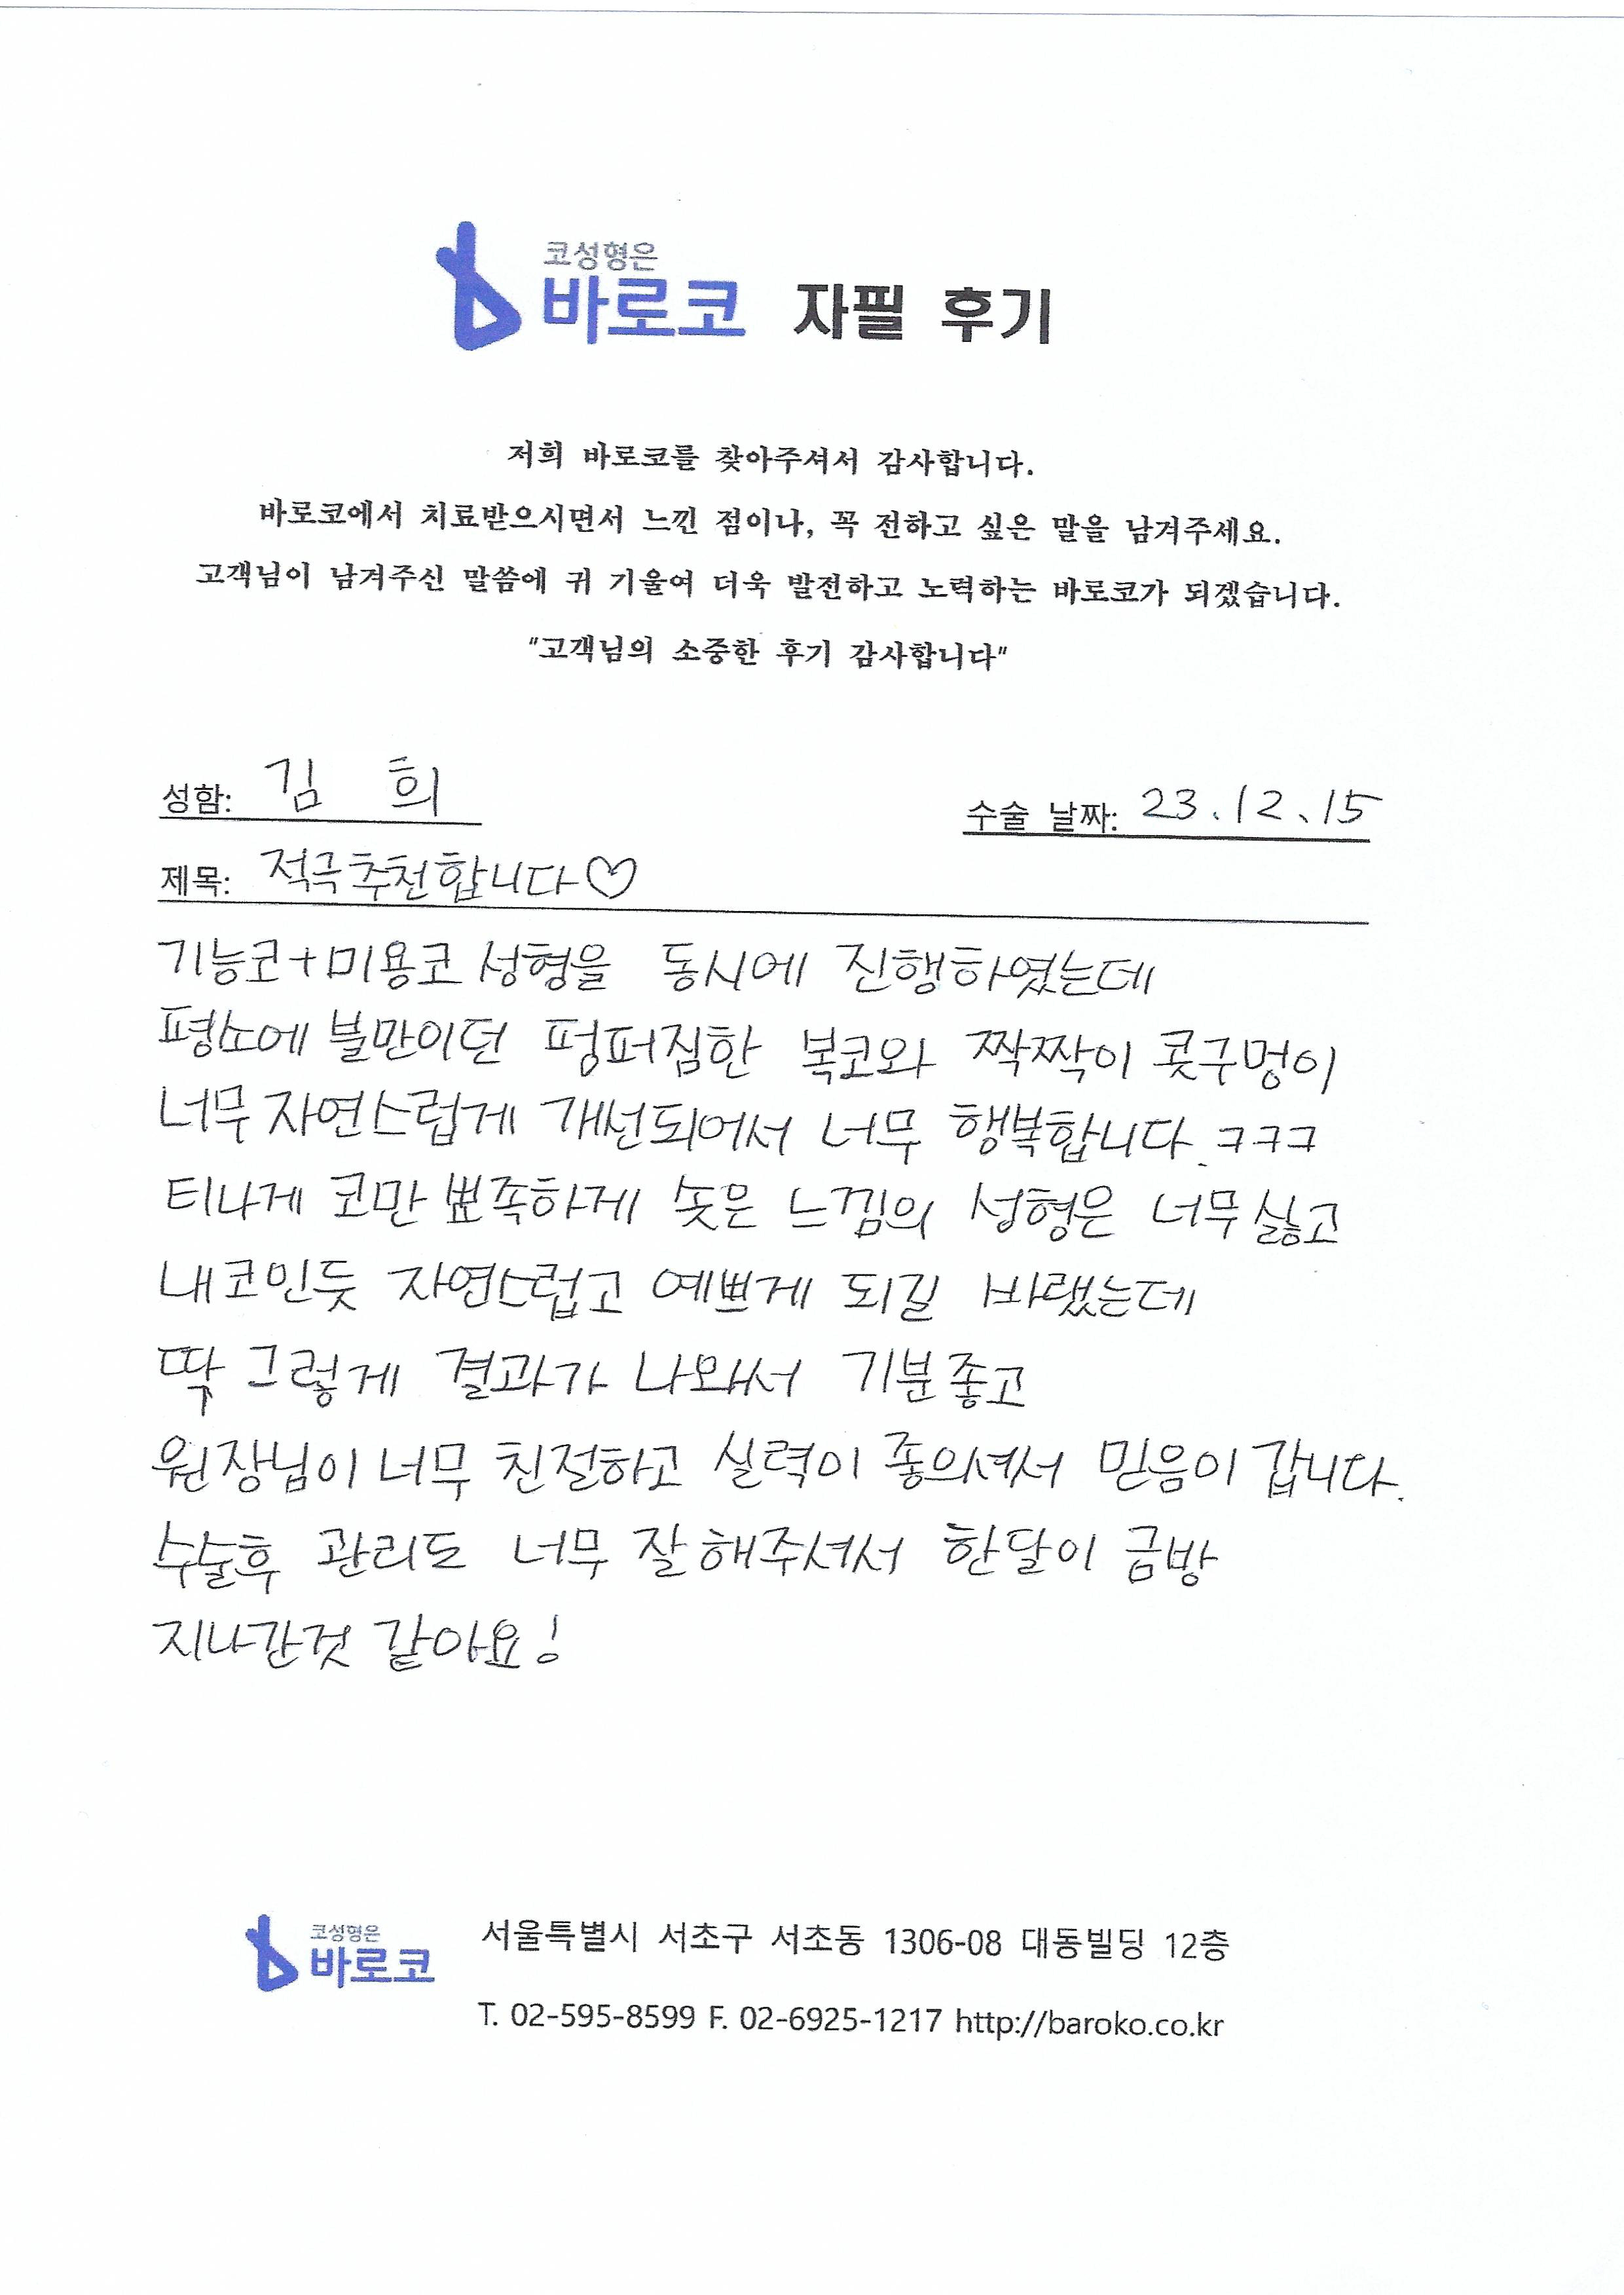 코성형은
바로코 자필 후기
저희 바로코를 찾아주셔서 감사합니다.
바로코에서 치료받으시면서 느낀 점이나, 꼭 전하고 싶은 말을 남겨주세요.
고객님이 남겨주신 말씀에 귀 기울여 더욱 발전하고 노력하는 바로코가 되겠습니다.
"고객님의 소중한 후기 감사합니다"
성함: 김 희 수술 날짜: 23.12.15
제목: 적극추천합니다♡
기능코+미용코 성형을 동시에 진행하였는데
평소에 불만이던 펑퍼짐한 복코와 짝짝이 콧구멍이
너무 자연스럽게 개선되어서 너무 행복합니다. ㅋㅋㅋ
티나게 코만 뾰족하게 솟은 느낌의 성형은 너무 싫고
내코인듯 자연스럽고 예쁘게 되길 바랬는데
딱 그렇게 결과가 나와서 기분좋고
원장님이 너무 친절하고 실력이 좋으셔서 믿음이 갑니다.
수술후 관리도 너무 잘해주셔서 한달이 금방
지나간것 같아요!
코성형은
바로코
서울특별시 서초구 서초동 1306-08 대동빌딩 12층
T. 02-595-8599 F. 02-6925-1217 http://baroko.co.kr